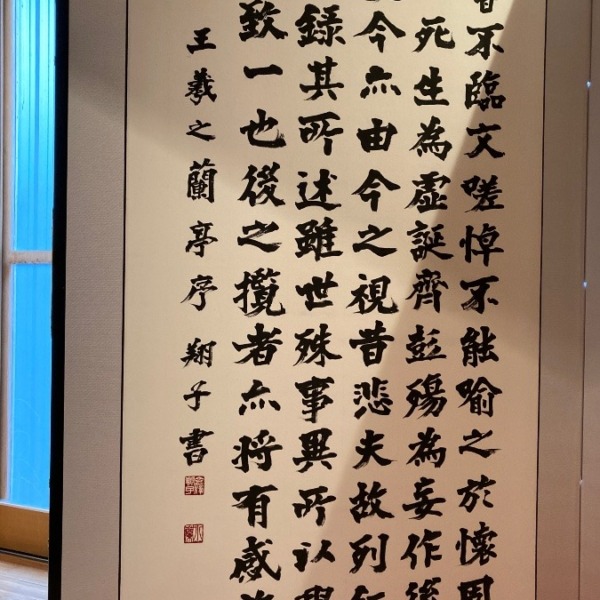 不臨文嗟悼不能喻之於懷固
死生為虛誕齊彭殤為妄作後
今亦由今之視昔悲夫故列
錄其所述雖世殊事異所以興
致一也後之攬者亦將有感
王羲之蘭亭序 翔子書